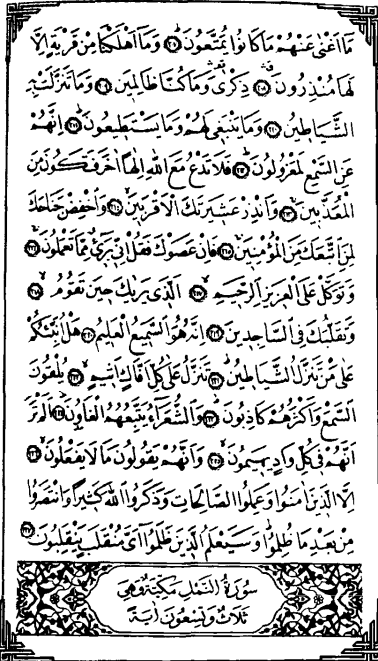 مَا اَغْنٰى عَنْهُمْ مَا كَانُوا يُمَتَّعُونَ ﴿٢٠٧﴾ وَمَا اَهْلَكْنَا مِنْ قَرْيَةٍ اِلَّا
لَهَا مُنْذِرُونَ ﴿٢٠٨﴾ ذِكْرٰى وَمَا كُنَّا ظَالِمِينَ ﴿٢٠٩﴾ وَمَا تَنَزَّلَتْ بِهِ
الشَّيَاطِينُ ﴿٢١٠﴾ وَمَا يَنْبَغِى لَهُمْ وَمَا يَسْتَطِيعُونَ ﴿٢١١﴾ اِنَّهُمْ
عَنِ السَّمْعِ لَمَعْزُولُونَ ﴿٢١٢﴾ فَلَا تَدْعُ مَعَ اللّٰهِ اِلٰهًا اٰخَرَ فَتَكُونَ مِنَ
الْمُعَذَّبِينَ ﴿٢١٣﴾ وَاَنْذِرْ عَشِيرَتَكَ الْاَقْرَبِينَ ﴿٢١٤﴾ وَاخْفِضْ جَنَاحَكَ
لِمَنِ اتَّبَعَكَ مِنَ الْمُؤْمِنِينَ ﴿٢١٥﴾ فَاِنْ عَصَوْكَ فَقُلْ اِنِّى بَرِىءٌ مِمَّا تَعْمَلُونَ ﴿٢١٦﴾
وَتَوَكَّلْ عَلَى الْعَزِيزِ الرَّحِيمِ ﴿٢١٧﴾ اَلَّذِى يَرٰيكَ حِينَ تَقُومُ ﴿٢١٨﴾
وَتَقَلُّبَكَ فِى السَّاجِدِينَ ﴿٢١٩﴾ اِنَّهُ هُوَ السَّمِيعُ الْعَلِيمُ ﴿٢٢٠﴾ هَلْ اُنَبِّئُكُمْ
عَلٰى مَنْ تَنَزَّلُ الشَّيَاطِينُ ﴿٢٢١﴾ تَنَزَّلُ عَلٰى كُلِّ اَفَّاكٍ اَثِيمٍ ﴿٢٢٢﴾ يُلْقُونَ
السَّمْعَ وَاَكْثَرُهُمْ كَاذِبُونَ ﴿٢٢٣﴾ وَالشُّعَرَاءُ يَتَّبِعُهُمُ الْغَاوُنَ ﴿٢٢٤﴾ اَلَمْ تَرَ
اَنَّهُمْ فِى كُلِّ وَادٍ يَهِيمُونَ ﴿٢٢٥﴾ وَاَنَّهُمْ يَقُولُونَ مَا لَا يَفْعَلُونَ ﴿٢٢٦﴾
اِلَّا الَّذِينَ اٰمَنُوا وَعَمِلُوا الصَّالِحَاتِ وَذَكَرُوا اللّٰهَ كَثِيرًا وَانْتَصَرُوا
مِنْ بَعْدِ مَا ظُلِمُوا وَسَيَعْلَمُ الَّذِينَ ظَلَمُوا اَىَّ مُنْقَلَبٍ يَنْقَلِبُونَ ﴿٢٢٧﴾
سُورَةُ النَّمْلِ مَكِّيَّةٌ وَهِىَ
ثَلَاثٌ وَتِسْعُونَ اٰيَةً